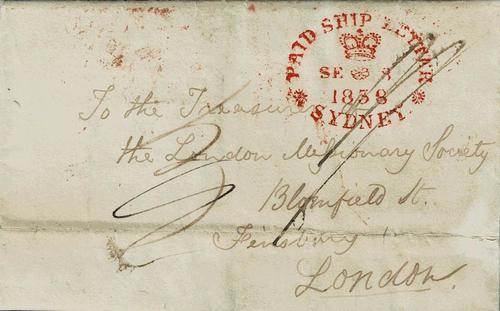 PAID SHIP LETTER
SE 8
1838
SYDNEY
To the Treasurer
the London Missionary Society
Blomfield St.
Finsbury
London.